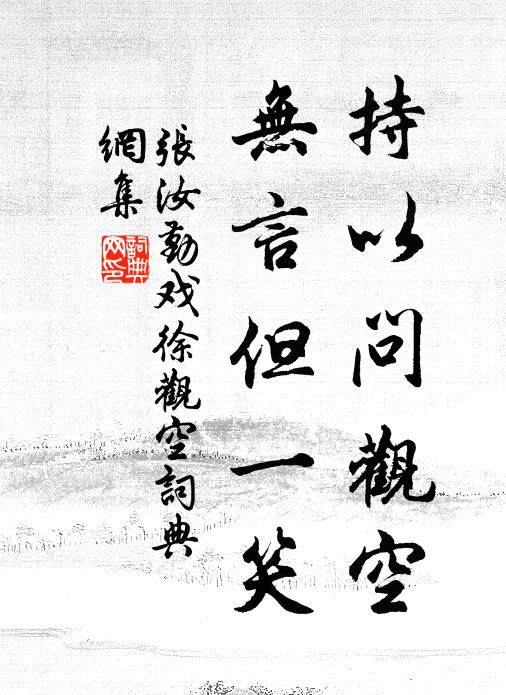 持以問觀空
無言但一笑
張汝勤戏徐觀空詞典
網集
詞典
网印